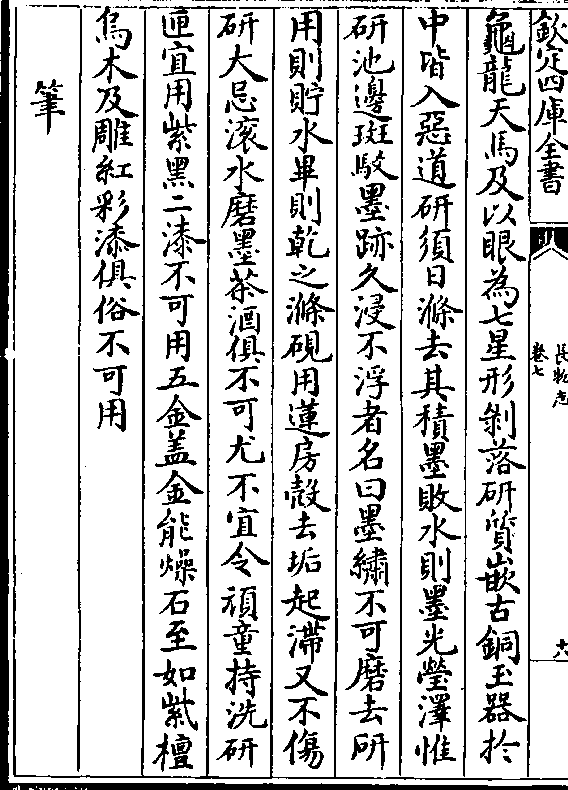 欽定四庫全書
長物志
卷七
六
龜龍天馬及以眼為七星形剝落研質嵌古銅玉器於
中皆入惡道研須日滌去其積墨敗水則墨光瑩澤惟
研池邊斑駮墨跡久浸不浮者名曰墨繡不可磨去研
用則貯水畢則乾之滌硯用蓮房殻去垢起滯又不傷
研大忌滚水磨墨茶酒俱不可尤不宜令頑童持洗研
匣宜用紫黑二漆不可用五金盖金能燥石至如紫檀
烏木及雕紅彩漆俱俗不可用
筆